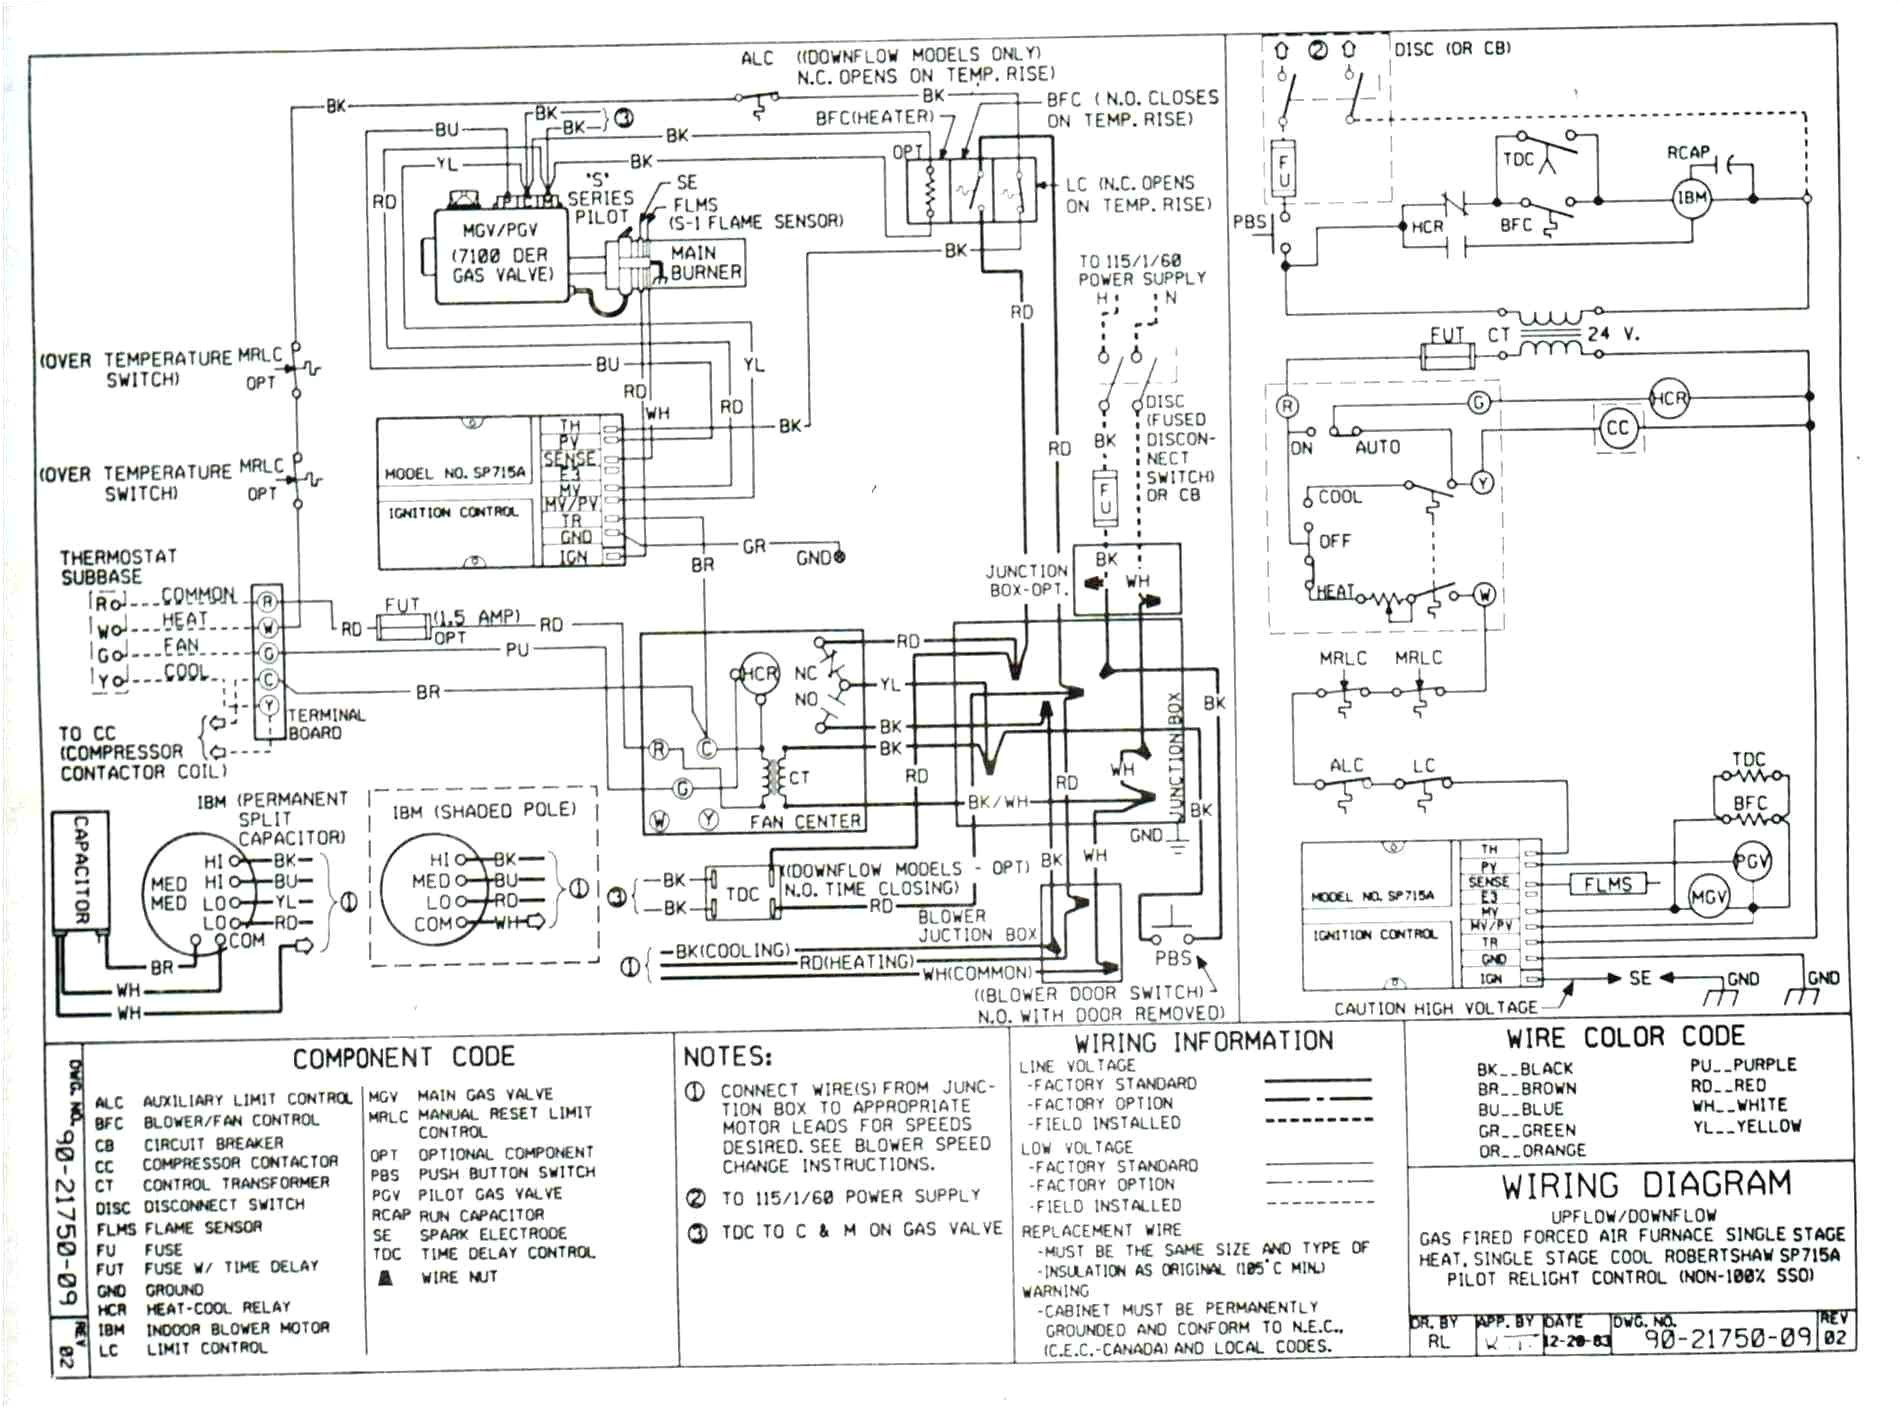 ALC ((DOWNFLOW MODELS ONLY)
N.C. OPENS ON TEMP. RISE)
BK
BK
BFC(HEATER)
BFC (N.O. CLOSES
ON TEMP. RISE)
BK
BK
3
BU
BK
YL
BK
RD
OPT
"S"
SERIES
PILOT
SE
FLMS
(S-1 FLAME SENSOR)
LC (N.C. OPENS
ON TEMP. RISE)
P C M
MGV/PGV
(7100 DER
GAS VALVE)
MAIN
BURNER
BK
TO 115/1/60
POWER SUPPLY
H N
RD
(OVER TEMPERATURE
SWITCH)
MRLC
OPT
BU
YL
RD
WH
RD
BK
RD
BK
DISC
(FUSED
DISCON-
NECT
SWITCH)
OR CB
FU
(OVER TEMPERATURE
SWITCH)
MRLC
OPT
MODEL NO. SP715A
IGNITION CONTROL
TH
PV
SENSE
E3
MV
MV/PV
TR
GND
IGN
GR
GND
BR
JUNCTION
BOX-OPT.
BK
WH
THERMOSTAT
SUBBASE
R COMMON R
W HEAT W
G FAN G
Y COOL C
Y
TERMINAL
BOARD
TO CC
(COMPRESSOR
CONTACTOR COIL)
RD
FUT
(1.5 AMP)
OPT
RD
PU
BR
HCR
NC
NO
RD
YL
BK
BK
R
C
G
CT
W
Y
FAN CENTER
RD
RD
BK/WH
WH
JUNCTION BOX
BK
BK
GND
CAPACITOR
IBM (PERMANENT
SPLIT
CAPACITOR)
HI BK
MED HI BU
MED LO YL
LO RD
COM
1
BR
WH
WH
IBM (SHADED POLE)
HI BK
MED BU
LO RD
COM WH
1
3
BK
BK
TDC
((DOWNFLOW MODELS - OPT)
N.O. TIME CLOSING)
RD
BK
WH
BLOWER
JUCTION BOX
1
BK(COOLING)
RD(HEATING)
WH(COMMON)
PBS
((BLOWER DOOR SWITCH)
N.O. WITH DOOR REMOVED)
2
DISC (OR CB)
FU
PBS
TDC
RCAP
IBM
HCR
BFC
FUT
CT
24 V.
R
G
HCR
CC
ON
AUTO
COOL
Y
OFF
HEAT
W
MRLC MRLC
ALC
LC
TDC
BFC
MODEL NO. SP715A
IGNITION CONTROL
TH
PV
SENSE
E3
MV
MV/PV
TR
GND
IGN
FLMS
PGV
MGV
SE
GND
GND
CAUTION HIGH VOLTAGE
DWG. NO. 90-21750-09
REV 02
COMPONENT CODE
ALC AUXILIARY LIMIT CONTROL
BFC BLOWER/FAN CONTROL
CB CIRCUIT BREAKER
CC COMPRESSOR CONTACTOR
CT CONTROL TRANSFORMER
DISC DISCONNECT SWITCH
FLMS FLAME SENSOR
FU FUSE
FUT FUSE W/ TIME DELAY
GND GROUND
HCR HEAT-COOL RELAY
IBM INDOOR BLOWER MOTOR
LC LIMIT CONTROL
MGV MAIN GAS VALVE
MRLC MANUAL RESET LIMIT
CONTROL
OPT OPTIONAL COMPONENT
PBS PUSH BUTTON SWITCH
PGV PILOT GAS VALVE
RCAP RUN CAPACITOR
SE SPARK ELECTRODE
TDC TIME DELAY CONTROL
WIRE NUT
NOTES:
1 CONNECT WIRE(S) FROM JUNC-
TION BOX TO APPROPRIATE
MOTOR LEADS FOR SPEEDS
DESIRED. SEE BLOWER SPEED
CHANGE INSTRUCTIONS.
2 TO 115/1/60 POWER SUPPLY
3 TDC TO C & M ON GAS VALVE
WIRING INFORMATION
LINE VOLTAGE
-FACTORY STANDARD
-FACTORY OPTION
-FIELD INSTALLED
LOW VOLTAGE
-FACTORY STANDARD
-FACTORY OPTION
-FIELD INSTALLED
REPLACEMENT WIRE
-MUST BE THE SAME SIZE AND TYPE OF
-INSULATION AS ORIGINAL (105°C MIN.)
WARNING
-CABINET MUST BE PERMANENTLY
GROUNDED AND CONFORM TO N.E.C.,
(C.E.C.-CANADA) AND LOCAL CODES.
WIRE COLOR CODE
BK__BLACK
BR__BROWN
BU__BLUE
GR__GREEN
OR__ORANGE
PU__PURPLE
RD__RED
WH__WHITE
YL__YELLOW
WIRING DIAGRAM
UPFLOW/DOWNFLOW
GAS FIRED FORCED AIR FURNACE SINGLE STAGE
HEAT, SINGLE STAGE COOL ROBERTSHAW SP715A
PILOT RELIGHT CONTROL (NON-100% SSO)
DR. BY
RL
APP. BY
DATE
12-20-83
DWG. NO.
90-21750-09
REV
02